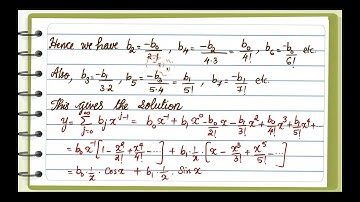 Hence we have b₂ = -b₀/2·1, b₄ = -b₂/4·3 = b₀/4!, b₆ = -b₀/6! etc.
Also, b₃ = -b₁/3·2, b₅ = -b₃/5·4 = b₁/5!, b₇ = -b₁/7! etc.
This gives the solution
y = ∑_{j=0}^{∞} b_j x^{j-1} = b₀x⁻¹ + b₁x⁰ - b₀/2! x - b₁/3! x² + b₀/4! x³ + b₁/5! x⁴ + ...
= b₀x⁻¹ [1 - x²/2! + x⁴/4! - ...] + b₁ · 1/x · [x - x³/3! + x⁵/5! - ...]
= b₀ · 1/x · cos x + b₁ · 1/x · sin x